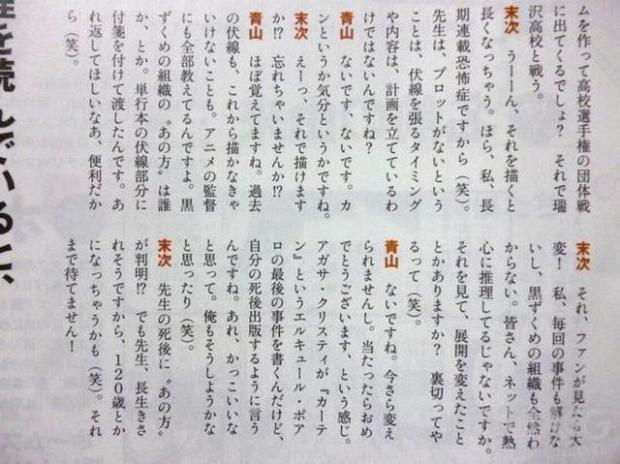 ムを作って高校選手権の団体戦
に出てくるでしょ? それで瑞
沢高校と戦う。
末次 うーん、それを描くと
長くなっちゃう。ほら、私、長
期連載恐怖症ですから(笑)。
先生は、プロットがないという
ことは、伏線を張るタイミング
や内容は、計画を立てているわ
けではないんですね?
青山 ないです、ないです。カ
ンというか気分というかですね。
末次 えーっ、それで描けます
か!? 忘れちゃいませんか!?
青山 ほぼ覚えてますね。過去
の伏線も、これから描かなきゃ
いけないことも。アニメの監督
にも全部教えてるんですよ。黒
ずくめの組織の“あの方”は誰
か、とか。単行本の伏線部分に
付箋を付けて渡したんです。あ
れ返してほしいなあ、便利だか
ら(笑)。
末次 それ、ファンが見たら大
変! 私、毎回の事件も解けな
いし、黒ずくめの組織も全然わ
からない。皆さん、ネットで熱
心に推理してるじゃないですか。
それを見て、展開を変えたこと
とかありますか? 裏切ってや
るって(笑)。
青山 ないですね。今さら変え
られませんし。当たったらおめ
でとうございます、という感じ。
アガサ クリスティが『カーテ
ン』というエルキュール・ポア
ロの最後の事件を書くんだけど、
自分の死後出版するように言う
んですね。あれ、かっこいいな
と思って。俺もそうしようかな
と思ったり(笑)。
末次 先生の死後に“あの方”
が判明!? でも先生、長生きさ
れそうですから、120歳とか
になっちゃうかも(笑)。それ
まで待てません!
性を読んでいると、